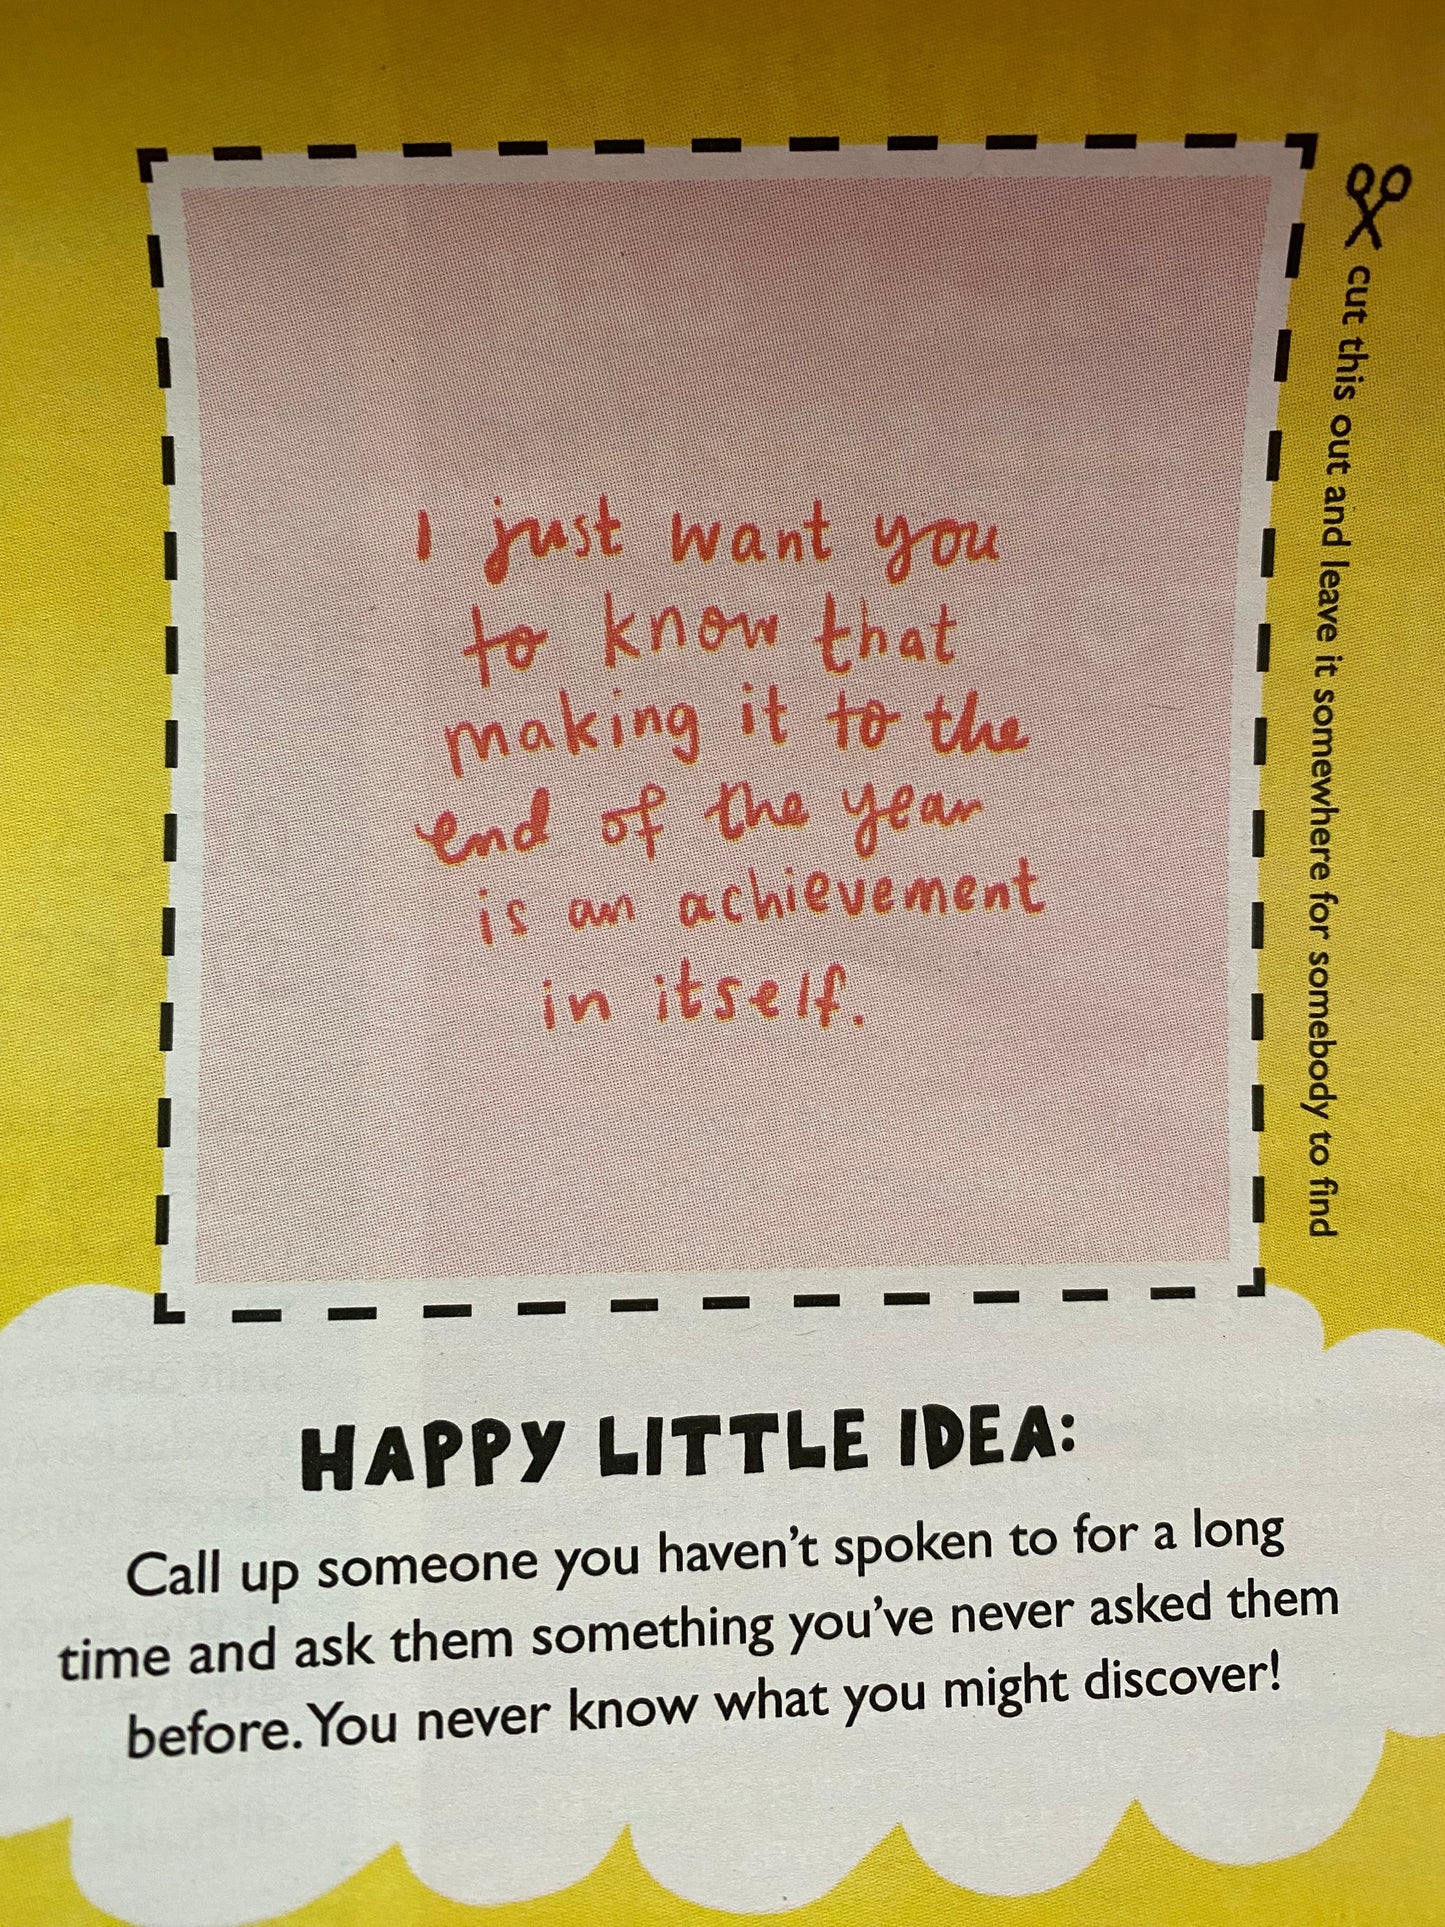 I just want you
to know that
making it to the
end of the year
is an achievement
in itself.
cut this out and leave it somewhere for somebody to find
HAPPY LITTLE IDEA:
Call up someone you haven't spoken to for a long
time and ask them something you've never asked them
before. You never know what you might discover!